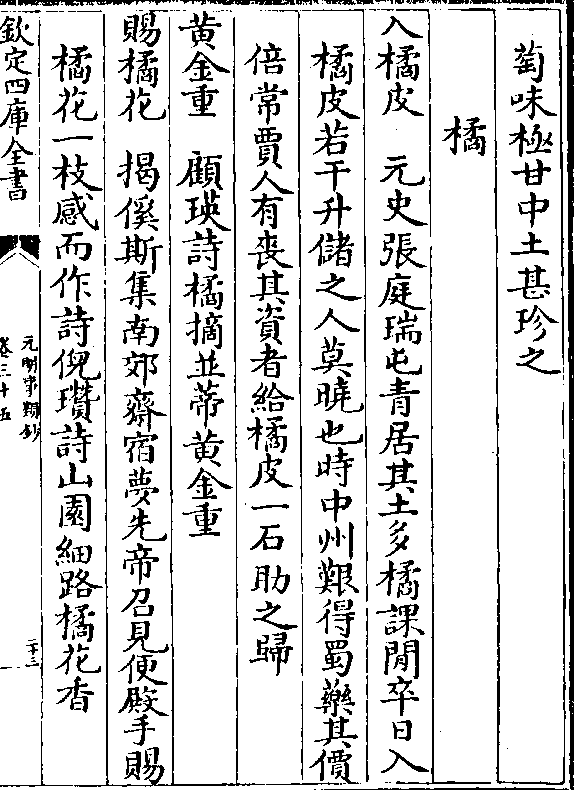 萄味極甘中土甚珍之
橘
入橘皮　元史張庭瑞屯青居其土多橘課閒卒日入
橘皮若干升儲之人莫曉也時中州艱得蜀藥其價
倍常賈人有喪其資者給橘皮一石助之歸
黄金重　顧瑛詩橘摘並蒂黄金重
賜橘花　揭傒斯集南郊齋宿夢先帝召見便殿手賜
橘花一枝感而作詩倪瓚詩山園細路橘花香
欽定四庫全書
元明事類鈔
卷三十五
二十三